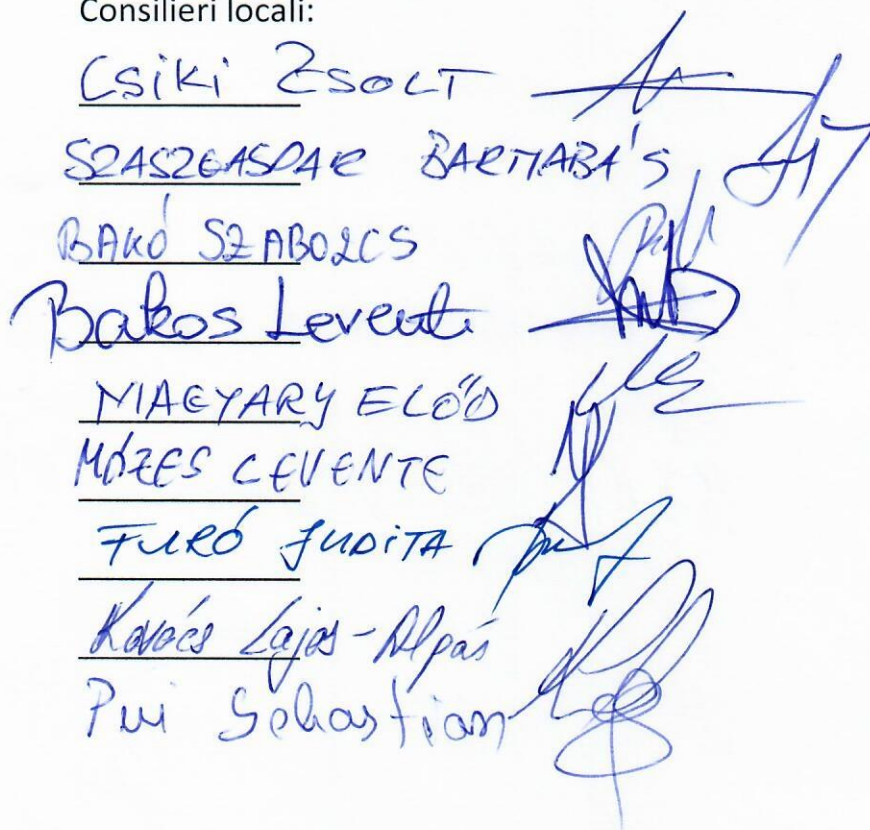 Consilieri locali:
CSiKi ZSOLT
SZASZGASPAR BARNABÁS
BAKÓ SZABOLCS
Bakos Levente
MAGYARY ELŐD
MÓZES LEVENTE
FURÓ JUDITA
Kovács Lajos-Alpás
Pui Sebastian